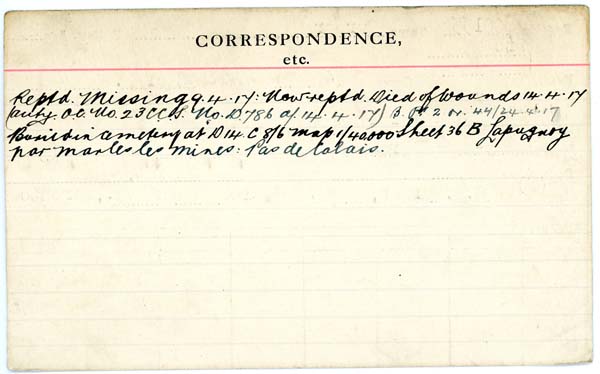 CORRESPONDENCE,
etc.
Reptd. Missing 9.4.17: Now reptd. Died of Wounds 14.4.17
(auty. O.C. No. 23 CCS. No. D786 of 14.4.17) B. 44/24.4.17
Buried in Cemetery at D14. C 8/6 map 1/40000 Sheet 36 B Lapugnoy
par Marles les Mines: Pas de Calais.